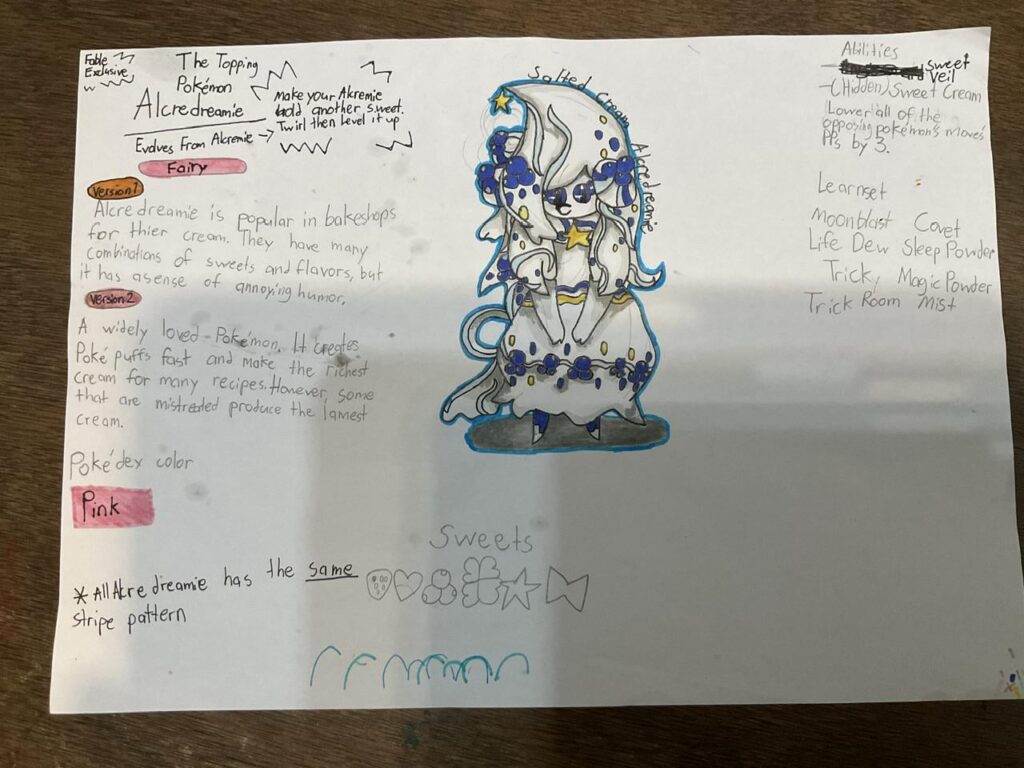 Fable
Exclusive
The Topping
Pokémon
Alcredreamie
Make your Alcremie
hold another sweet.
Twirl then level it up.
Evolves From Alcremie →
Fairy
Version 1
Alcredreamie is popular in bakeshops
for thier cream. They have many
combinations of sweets and flavors, but
it has a sense of annoying humor.
Version 2
A widely loved Pokémon. It creates
Poké puffs fast and make the richest
cream for many recipes. However, some
that are mistreded produce the lamest
cream.
Pokédex color
Pink
*All Alcredreamie has the same
stripe pattern
Salted Cream
Alcredreamie
Sweets
Abilities
sweet
veil
-(Hidden) Sweet Cream
Lower all of the
opposing pokémon's moves
PPs by 3.
Learnset
Moonblast Covet
Life Dew Sleep Powder
Trick, Magic Powder
Trick Room Mist